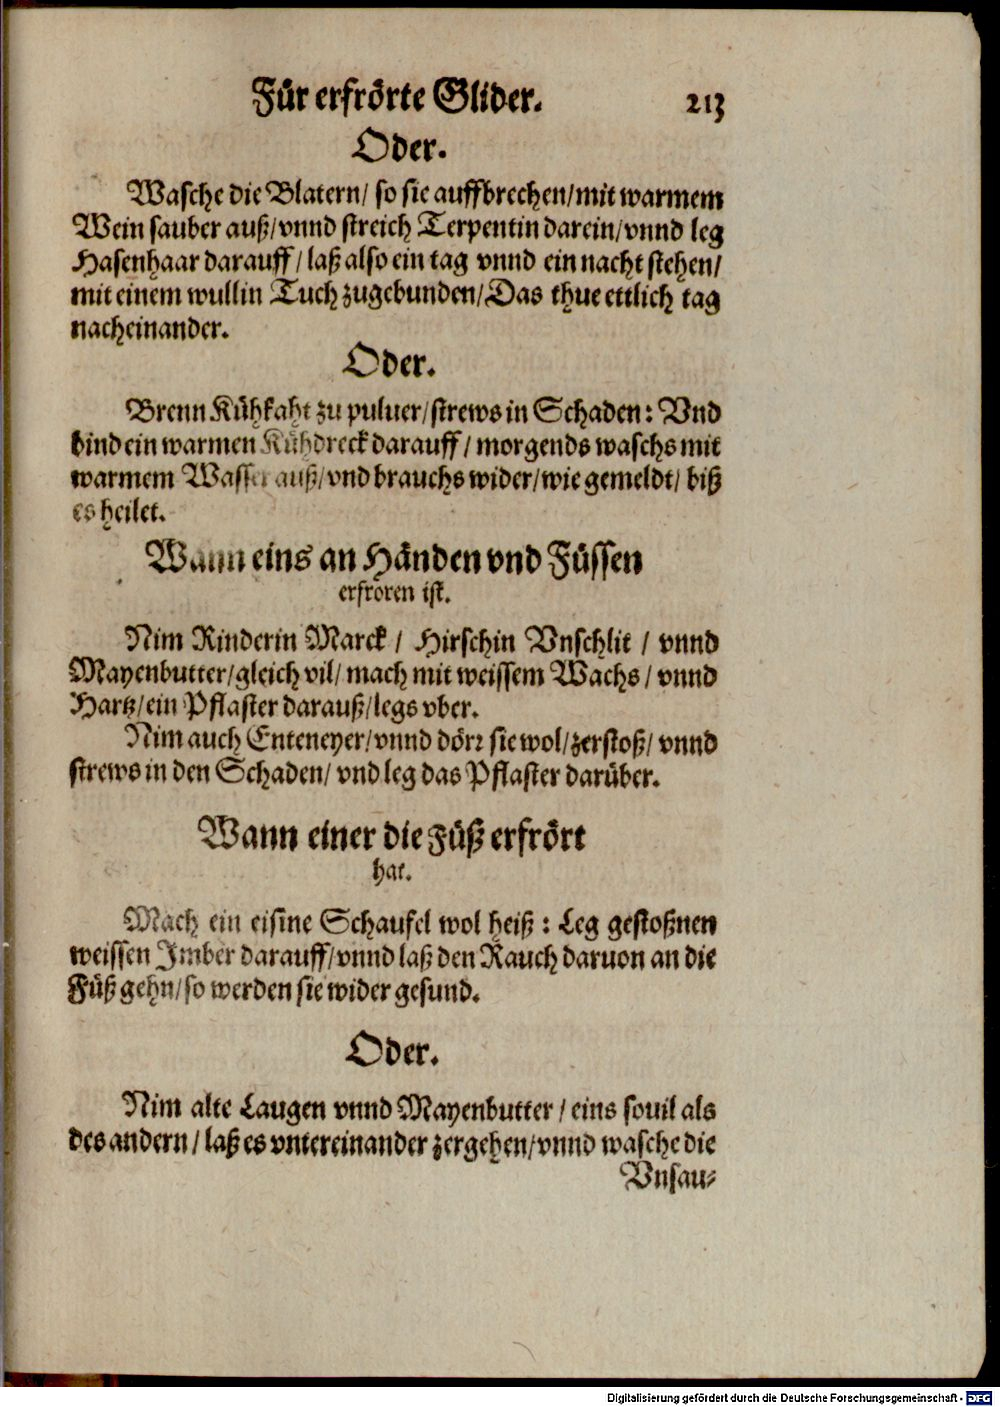 Für erfrörte Glider. 213
Oder.
Wasche die Blatern/ so sie auffbrechen/mit warmem
Wein sauber auß/vnnd streich Terpentin darein/vnnd leg
Hasenhaar darauff/ laß also ein tag vnnd ein nacht stehen/
mit einem wullin Tuch zugebunden/Das thue ettlich tag
nacheinander.
Oder.
Brenn Kühkaht zu puluer/strews in Schaden: Vnd
bind ein warmen Kühdreck darauff/ morgends waschs mit
warmem Wasser auß/vnd brauchs wider/wie gemeldt/ biß
es heilet.
Wann eins an Händen vnd Füssen
erfroren ist.
Nim Rinderin Marck / Hirschin Vnschlit / vnnd
Mayenbutter/gleich vil/ mach mit weissem Wachs/ vnnd
Hartz/ein Pflaster darauß/legs vber.
Nim auch Enteneyer/vnnd dörr sie wol/zerstoß/ vnnd
strews in den Schaden/ vnd leg das Pflaster darüber.
Wann einer die Füß erfrört
hat.
Mach ein eisine Schaufel wol heiß : Leg gestoßnen
weissen Imber darauff/vnnd laß den Rauch daruon an die
Füß gehn/so werden sie wider gesund.
Oder.
Nim alte Laugen vnnd Mayenbutter / eins souil als
des andern/ laß es vntereinander zergehen/vnnd wasche die
Vnsau-
Digitalisierung gefördert durch die Deutsche Forschungsgemeinschaft - DFG